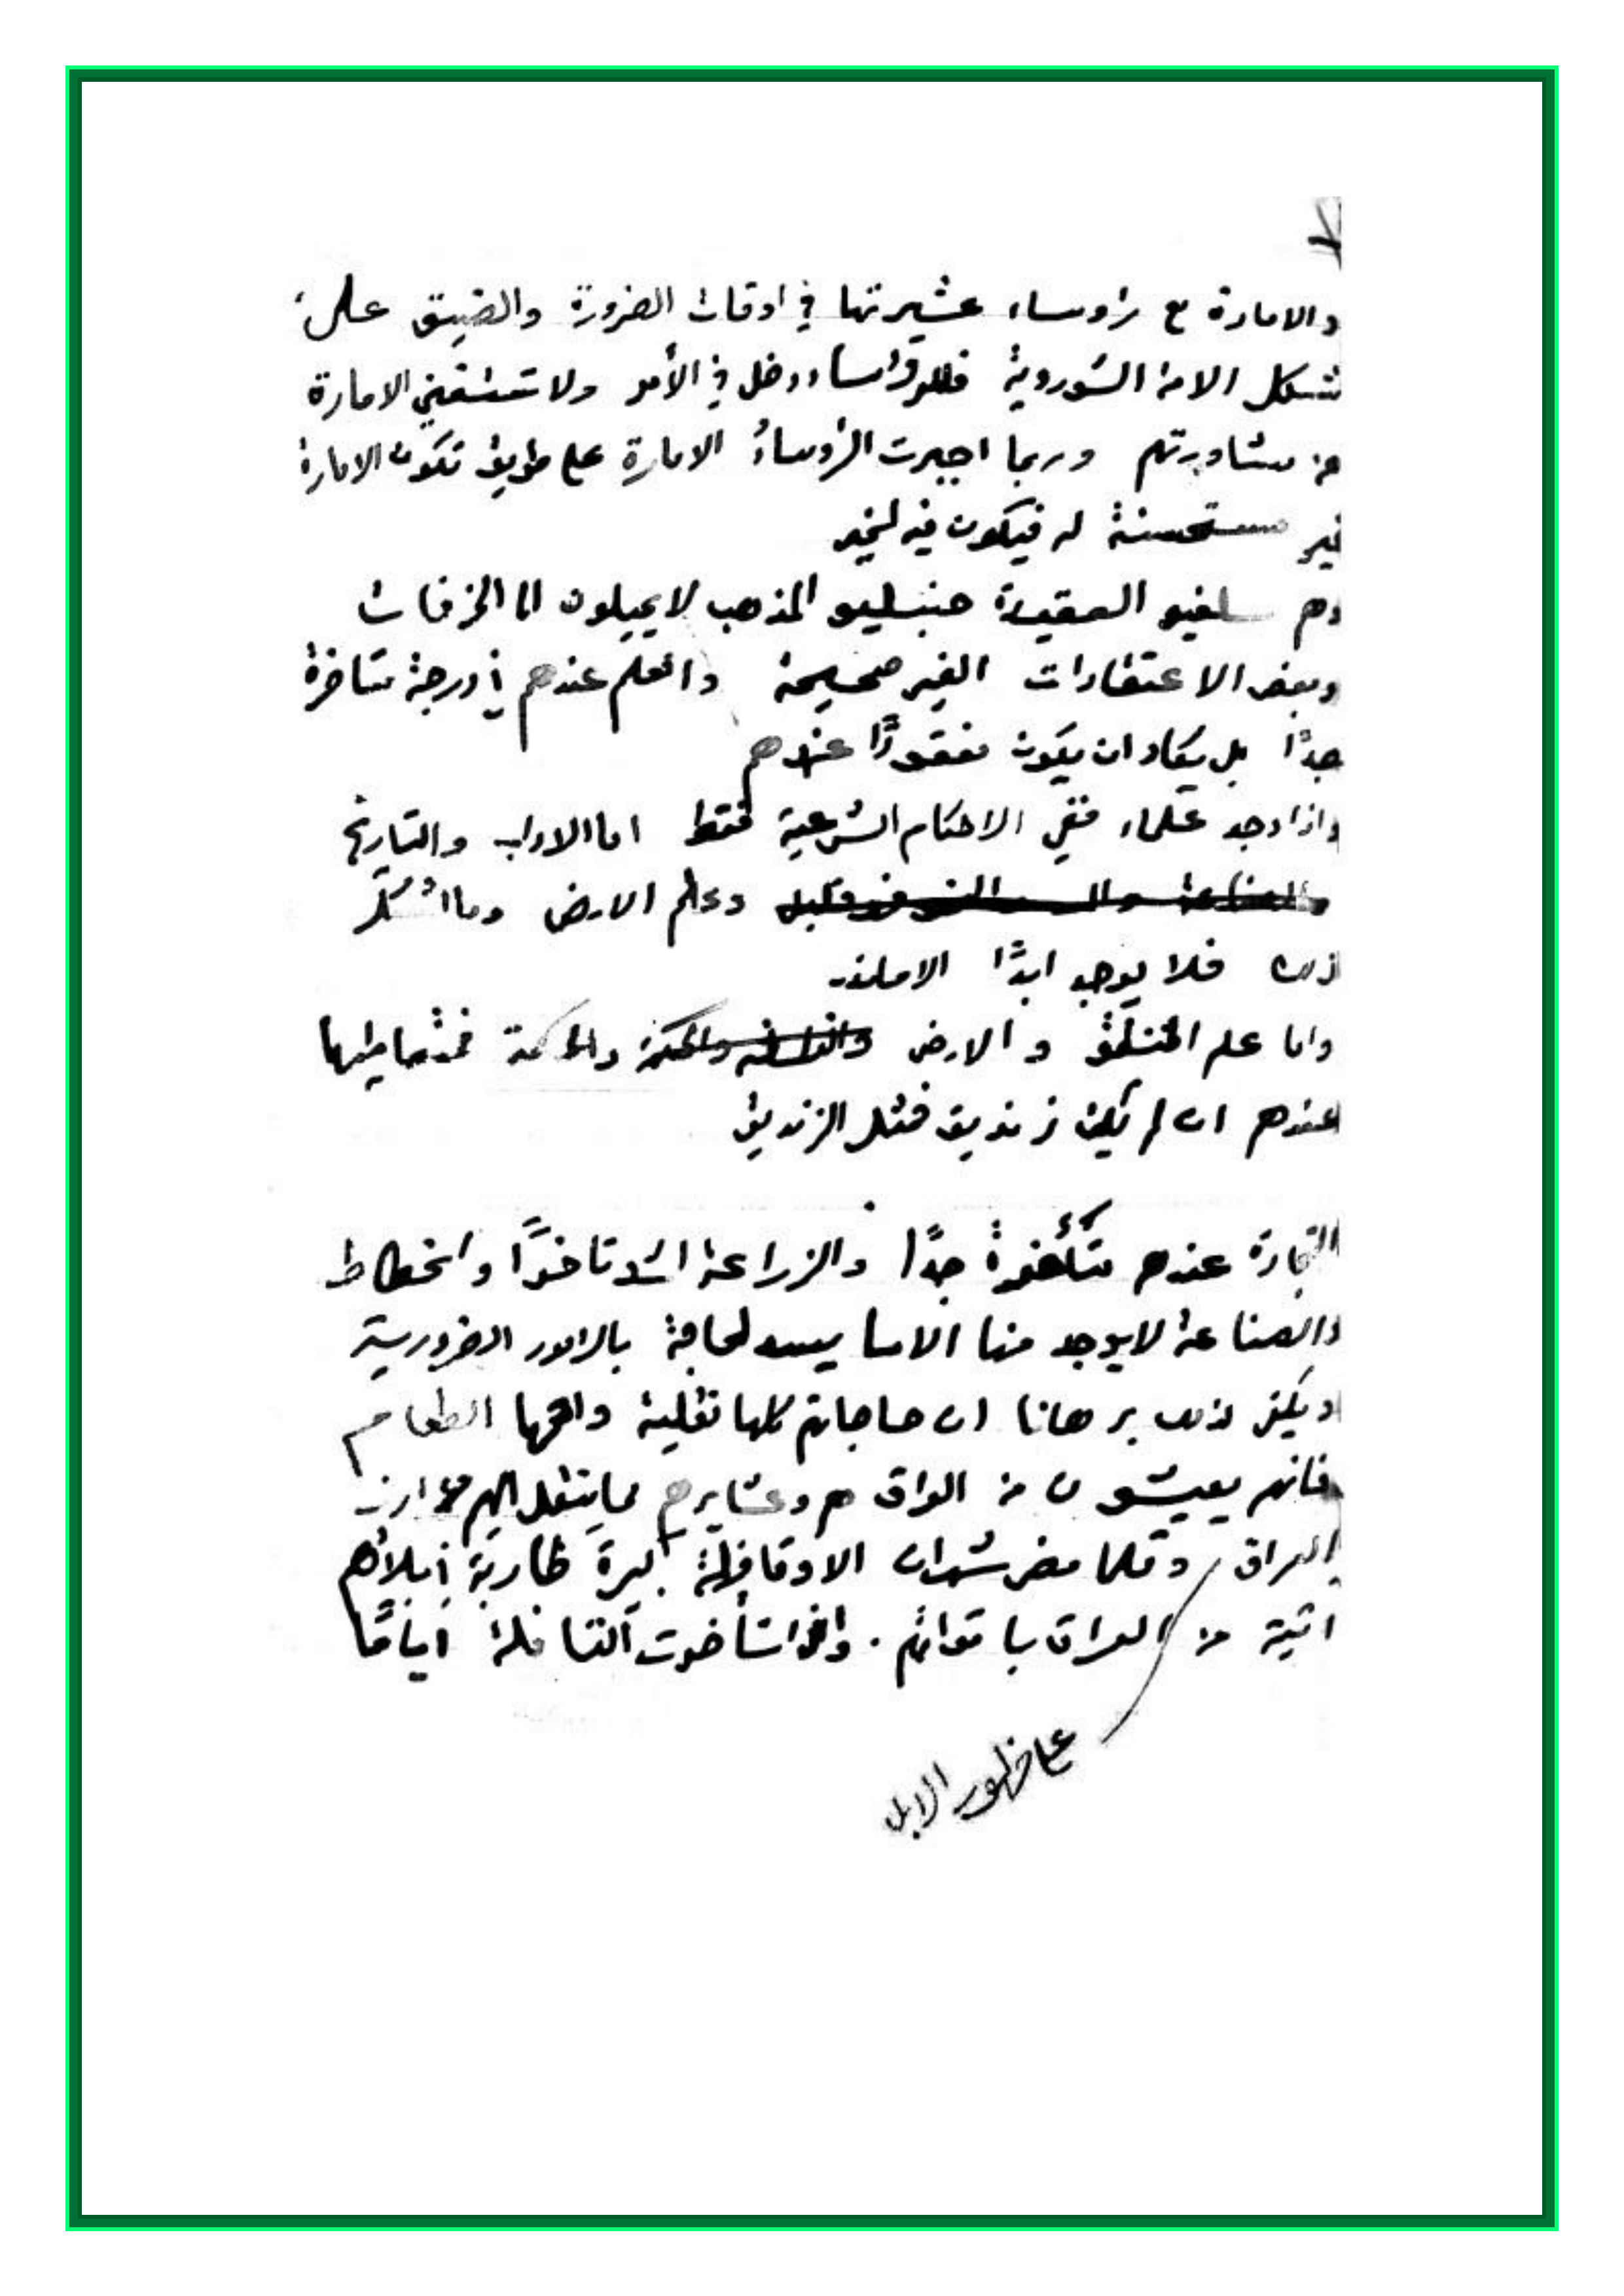 والامارة مع رؤساء عشيرتها في اوقات الضرورة والضيق على
شكل الامة الشوروية فللرؤساء دخل في الأمر ولا تستغني الامارة
من مشاورتهم وربما اجبرت الرؤساءُ الامارة على طريق تكون الامارة
غير مستحسنة له فيكون فيه لخير
وهم سلفيو العقيدة حنبليو المذهب لا يميلون الى الخرفات
وبعض الاعتقادات الغير صحيحة والعلم عندهم في درجة متاخرة
جدًا بل يكاد ان يكون مفقودًا عندهم
واذا وجد علماء ففي الاحكام الشرعية فقط اما الاداب والتاريخ
وعلم الارض وما اشكل
ذلك فلا يوجد ابدًا
واما علم المنطق والارض والحكمة فمتعاطيها
عندهم ان لم يكن زنديق فمثل الزنديق
التجارة عندهم متأخرة جدًا والزراعة اشد تاخرًا وانحطاط
والصناعة لا يوجد منها الا ما يسد لحاجة بالامور الضرورية
ويكفي لذلك برهانا ان حاجاتهم كلها نقلية واهمها الطعام
فانهم يعيشون من العراق هم وعشايرهم بما ينتقل اليهم من
العراق وقلما مضى شهران الا وقافلة كبيرة ضاربة
اتية من العراق باقواتهم . واذا استأخرت القافلة اياما
على ظهور الابل